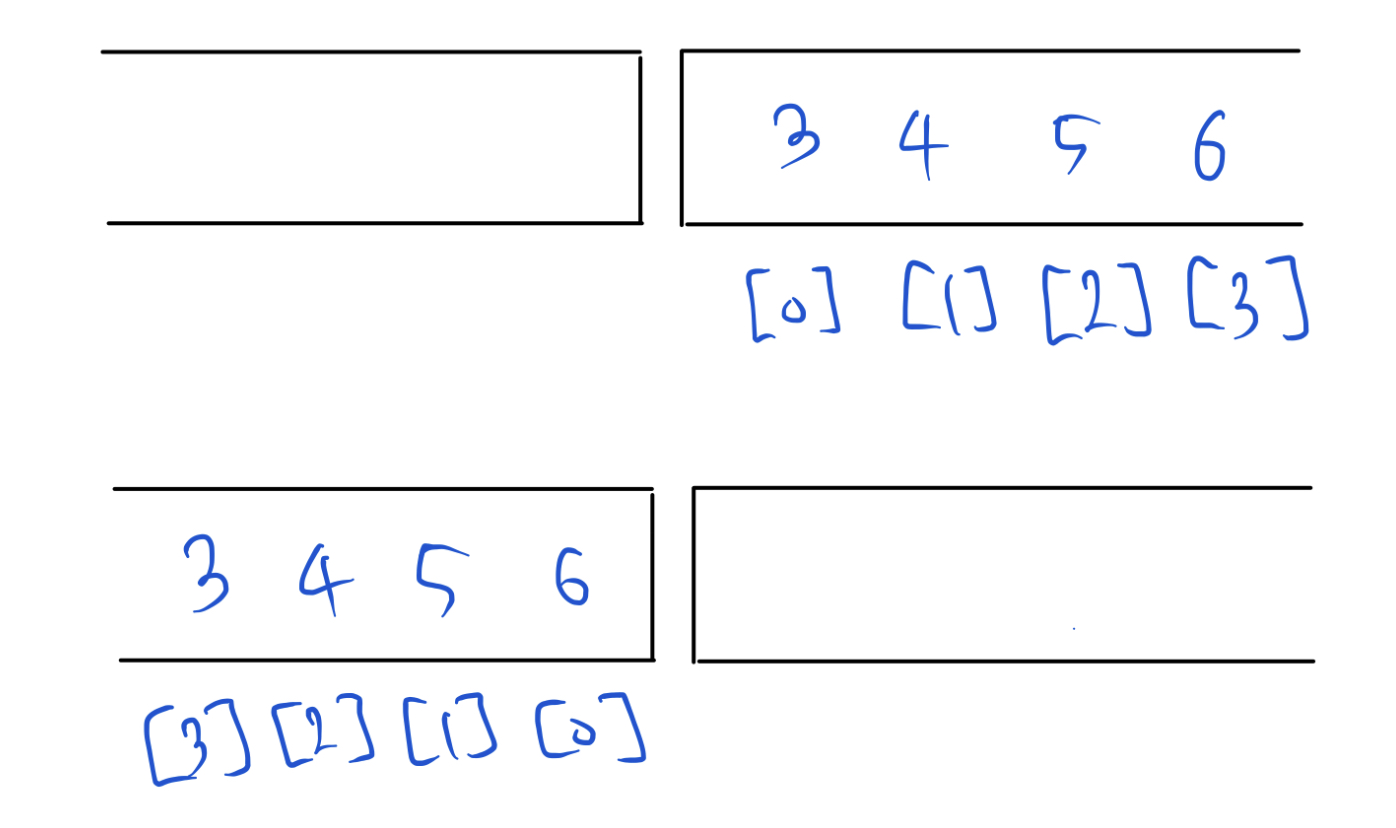 3 4 5 6
[0] [1] [2] [3]
3 4 5 6
[3] [2] [1] [0]